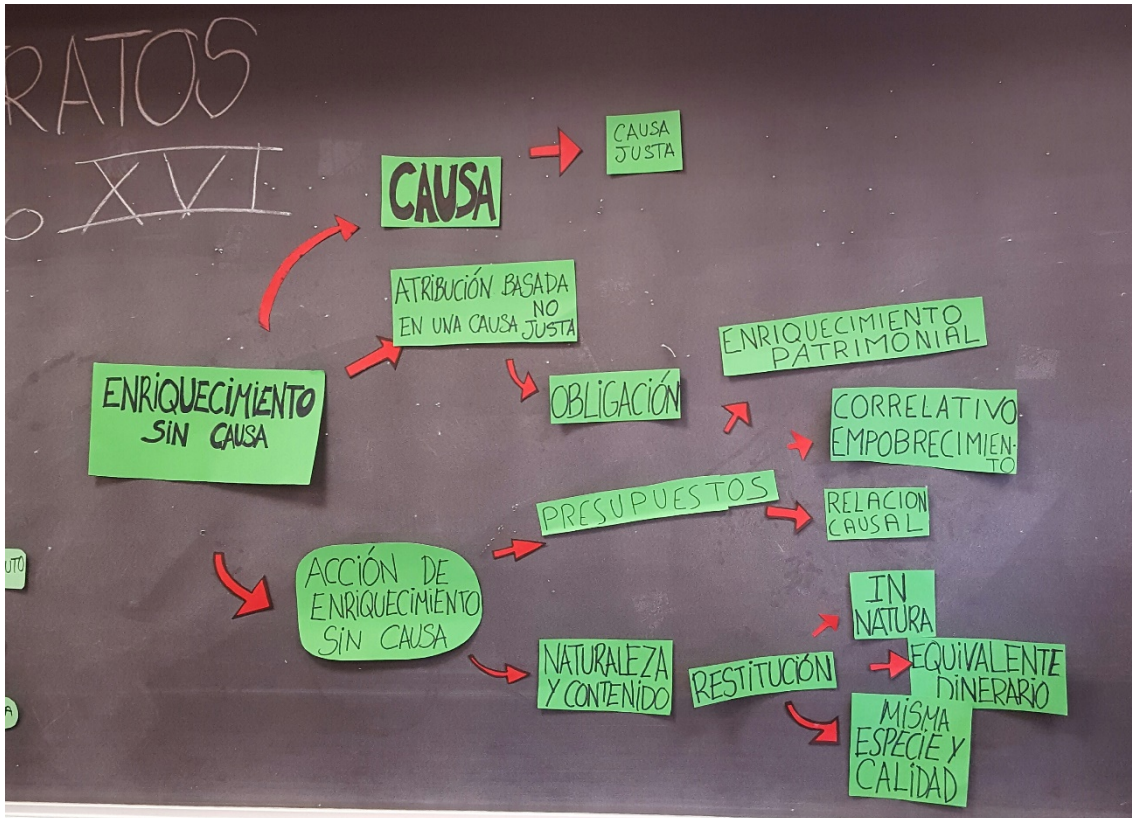 RATOS
O XVI
CAUSA
CAUSA
JUSTA
ATRIBUCIÓN BASADA
EN UNA CAUSA NO
JUSTA
OBLIGACIÓN
ENRIQUECIMIENTO
SIN CAUSA
ENRIQUECIMIENTO
PATRIMONIAL
CORRELATIVO
EMPOBRECIMIEN-
TO
PRESUPUESTOS
RELACION
CAUSAL
UTO
ACCIÓN DE
ENRIQUECIMIENTO
SIN CAUSA
NATURALEZA
Y CONTENIDO
RESTITUCIÓN
IN
NATURA
EQUIVALENTE
DINERARIO
MISMA
ESPECIE Y
CALIDAD
A